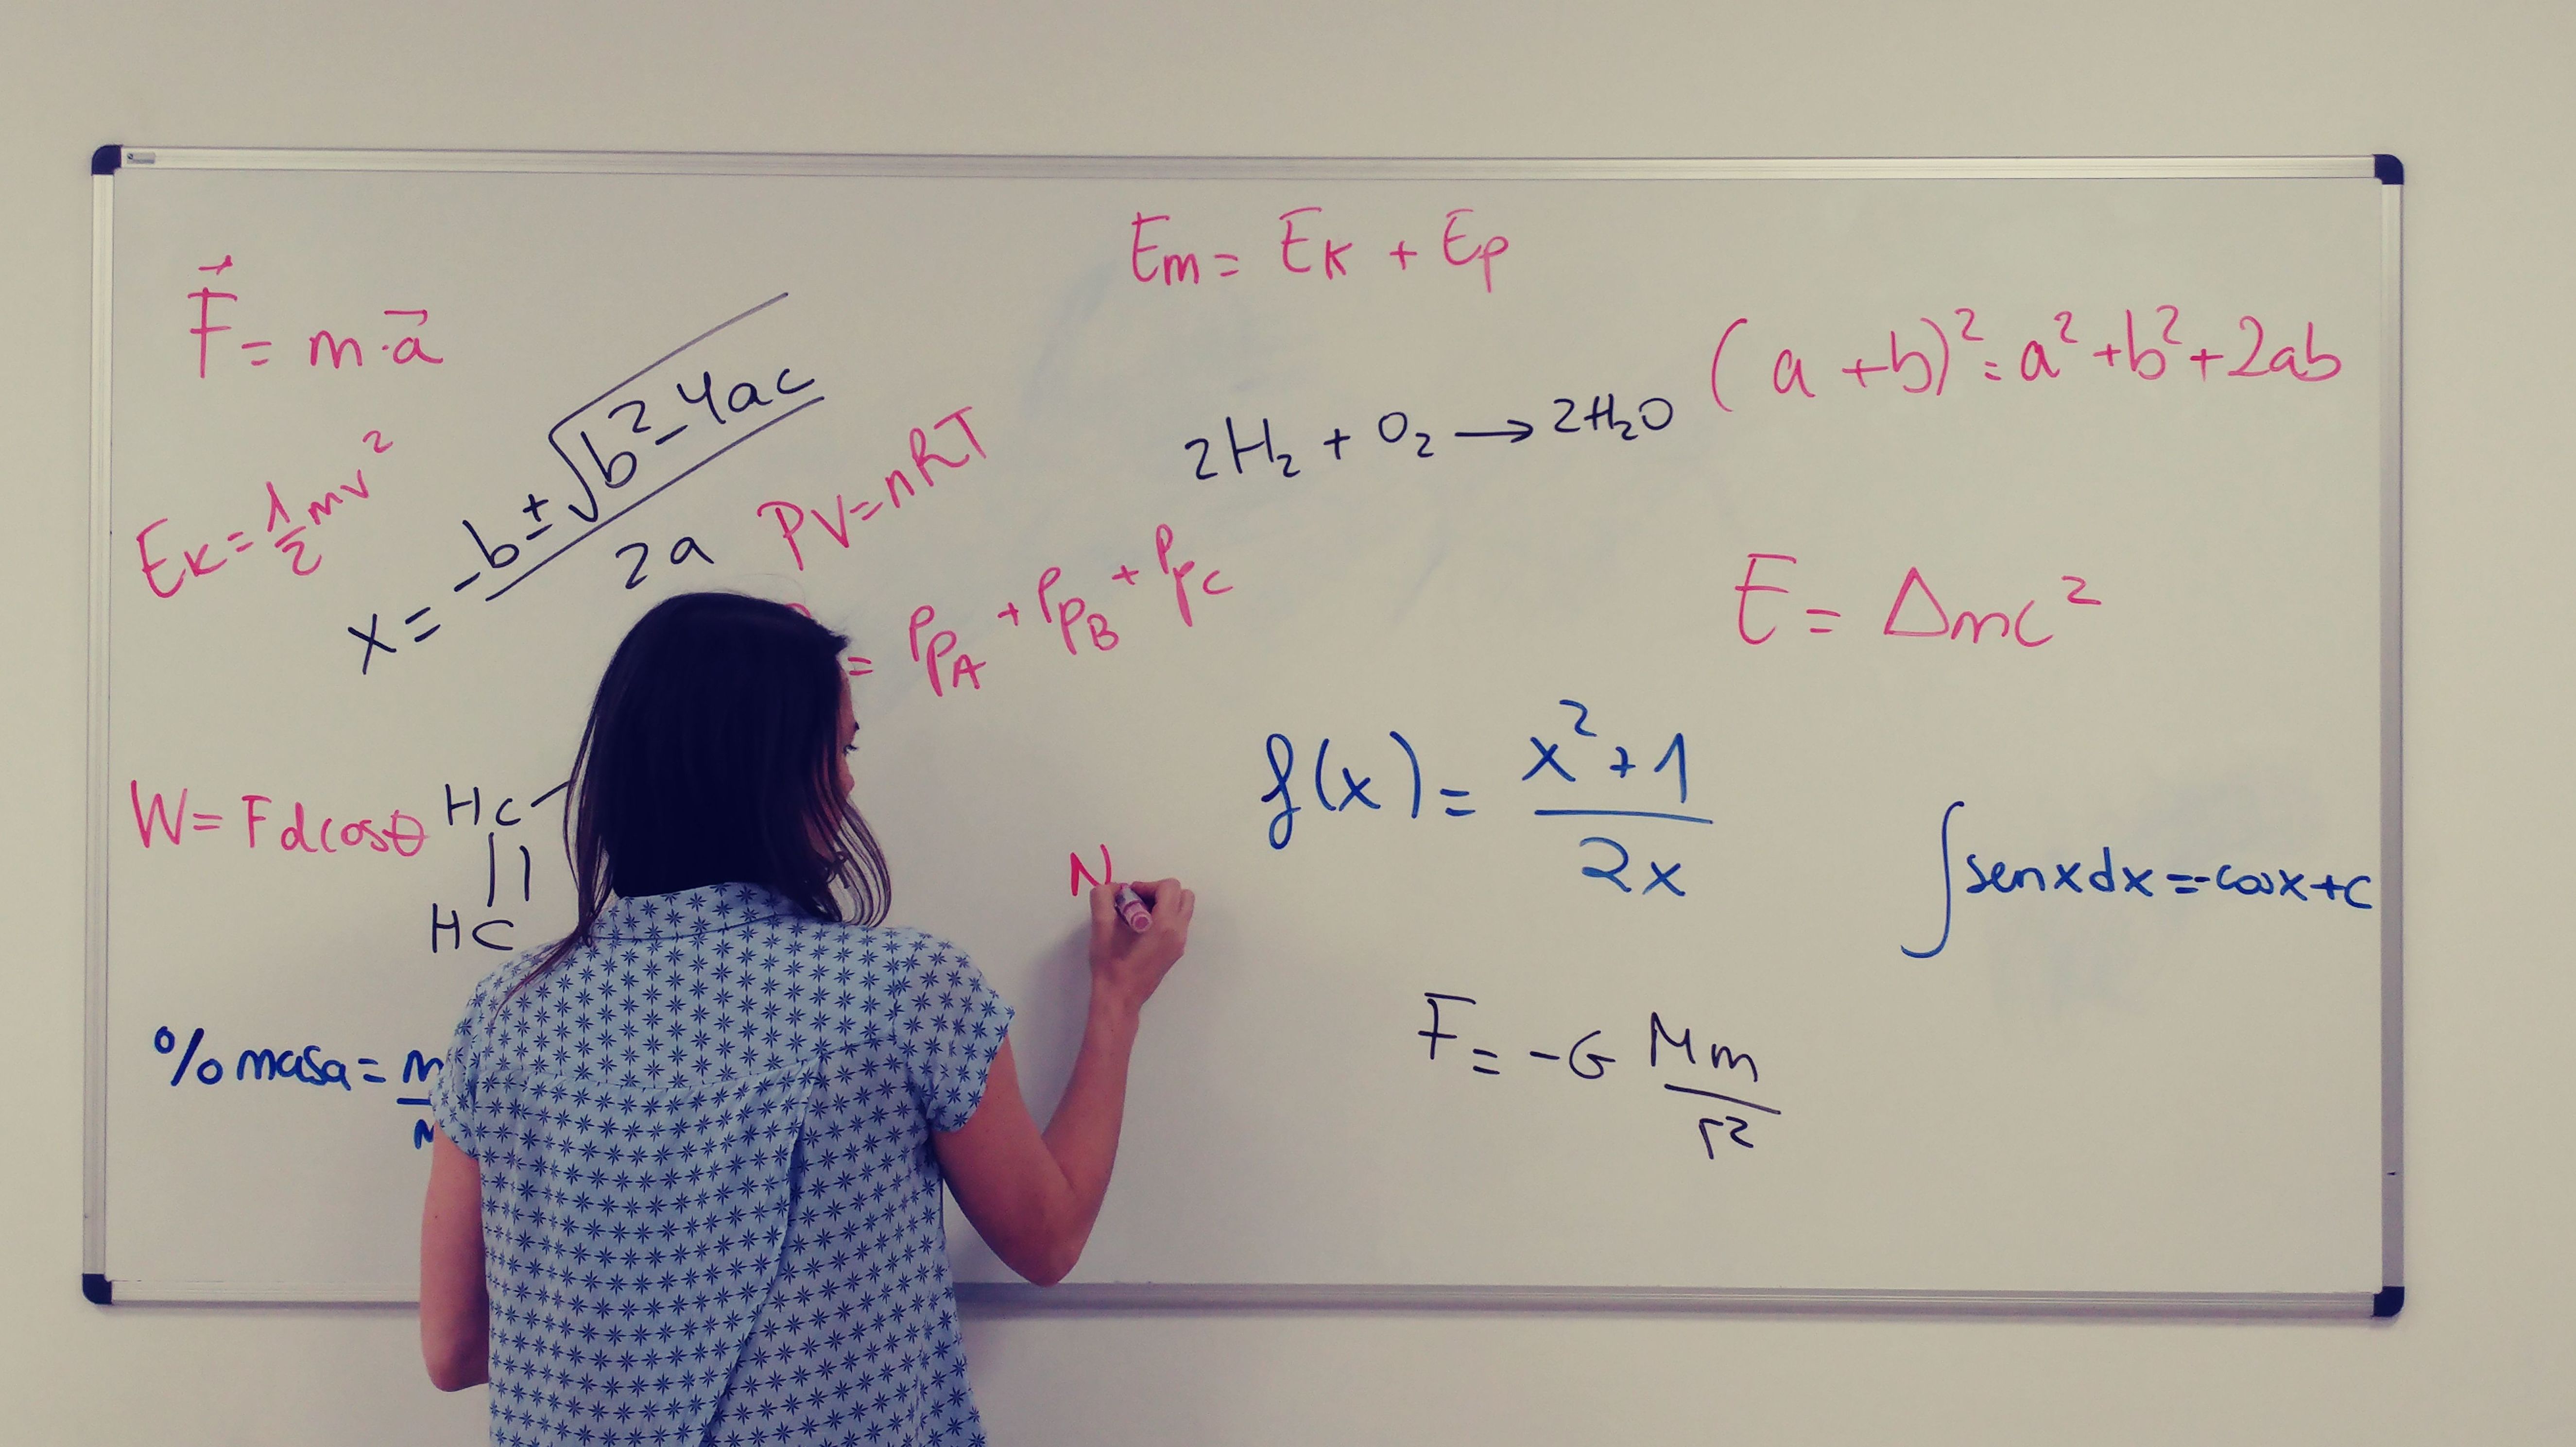 Em = Ek + Ep
F⃗ = m·a⃗
(a + b)² = a² + b² + 2ab
x = -b ± √(b² - 4ac) / 2a
2H₂ + O₂ → 2H₂O
Ek = 1/2 mv²
PV = nRT
= PpA + PpB + PpC
E = Δmc²
f(x) = x² + 1 / 2x
W = Fd cosθ
HC
HC
N
∫ sen x dx = -cos x + c
% masa = m
F = -G Mm / r²